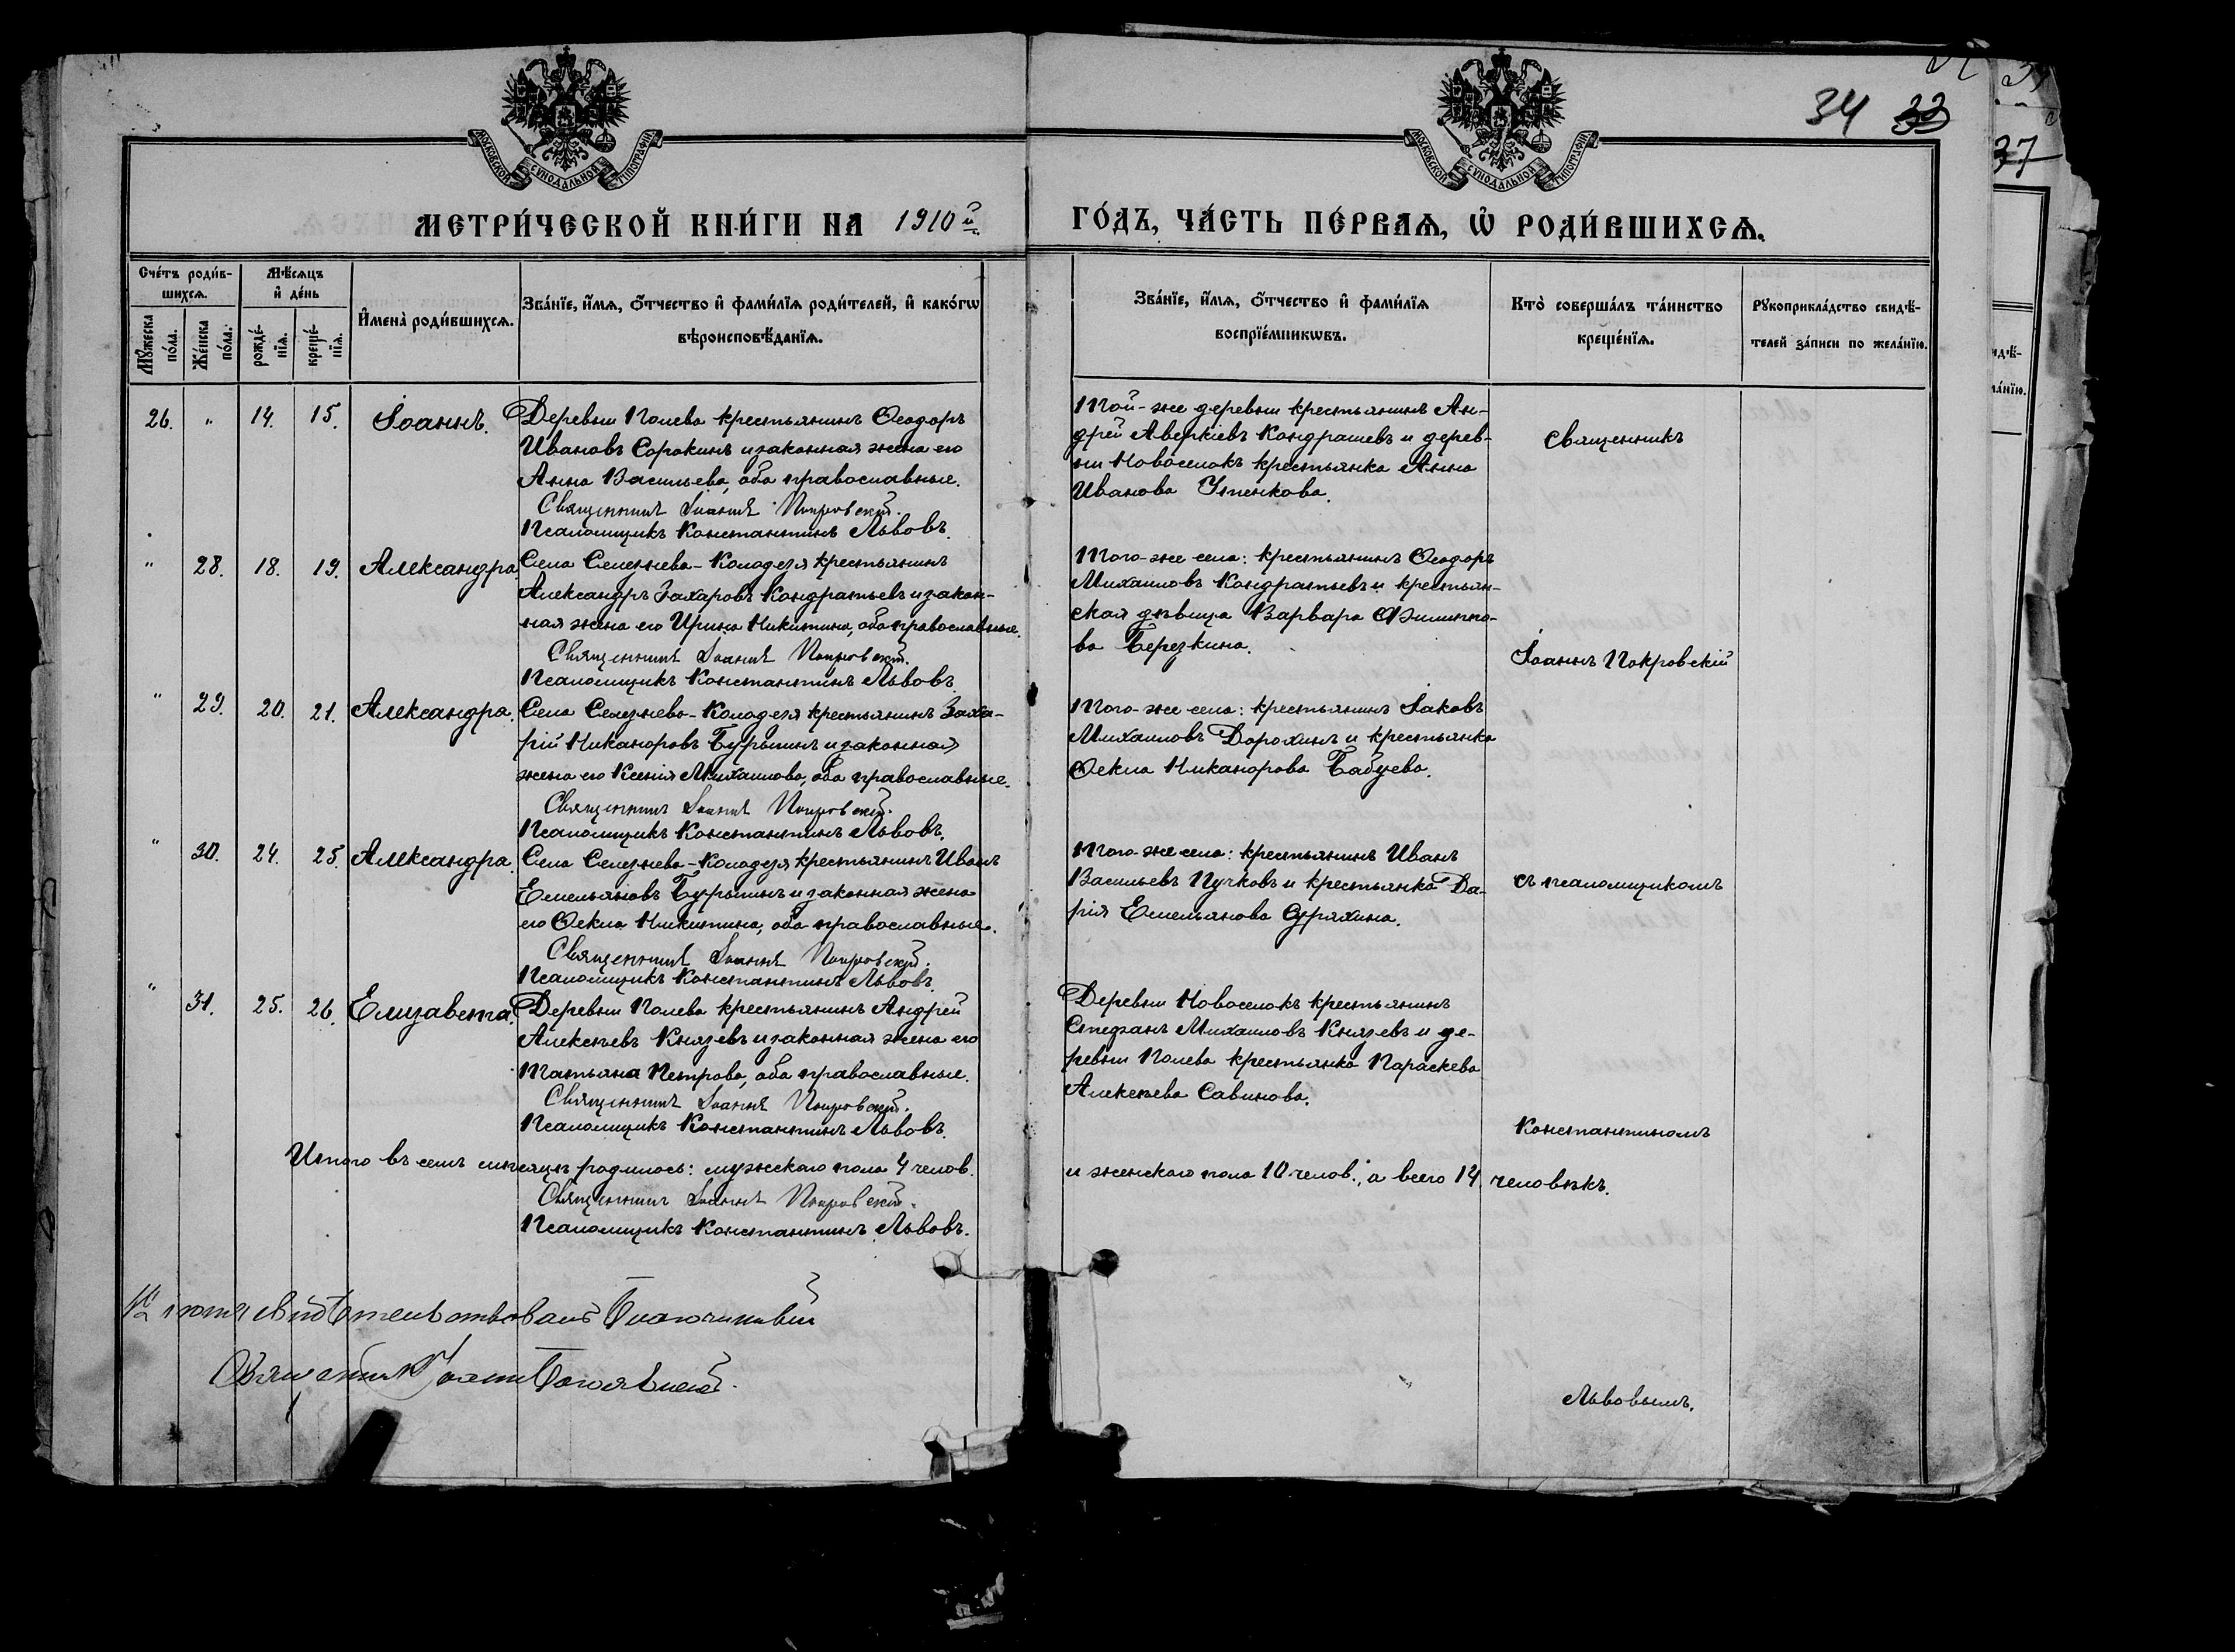 34 33
37
МОСКОВСКОЙ СѴНОДАЛЬНОЙ ТИПОГРАФІИ
МОСКОВСКОЙ СѴНОДАЛЬНОЙ ТИПОГРАФІИ
МЕТРИ́ЧЕСКОЙ КНИ́ГИ НА 1910й
ГО́ДЪ, ЧА́СТЬ ПЕ́РВАѦ, Ѡ҆ РОДИ́ВШИХСѦ.
Сче́тъ роди́в-
шихсѧ.
Мꙋ́жеска по́ла.
Же́нска по́ла.
Мѣ́сѧцъ
и҆ де́нь
рожде́-
нїѧ.
креще́-
нїѧ.
И҆мена̀ роди́вшихсѧ.
Зва́нїе, и҆́мѧ, ѻ҆́тчество и҆ фами́лїѧ роди́телей, и҆ како́гѡ
вѣроисповѣ́данїѧ.
Зва́нїе, и҆́мѧ, ѻ҆́тчество и҆ фами́лїѧ
воспрїе́мникѡвъ.
Кто̀ соверша́лъ та́инство
креще́нїѧ.
Рꙋкоприкла́дство свидѣ́-
телей за́писи по жела́нїю.
26. " 14. 15. Іоаннъ.
Деревни Полева крестьянинъ Ѳеодоръ
Ивановъ Сорокинъ и законная жена его
Анна Васильева, оба православные.
Священникъ Іоаннъ Покровскій.
Псаломщикъ Константинъ Львовъ.
Той-же деревни крестьянинъ Ан-
дрей Аверкіевъ Кондрашевъ и дерев-
ни Новоселокъ крестьянка Анна
Иванова Утенкова.
Священникъ
" 28. 18. 19. Александра.
Села Селезнева-Колодезя крестьянинъ
Александръ Захаровъ Кондратьевъ и закон-
ная жена его Ирина Никитина, оба православные.
Священникъ Іоаннъ Покровскій.
Псаломщикъ Константинъ Львовъ.
Того-же села: крестьянинъ Ѳеодоръ
Михаиловъ Кондратьевъ и крестьян-
ская дѣвица Варвара Филиппо-
ва Березкина.
Іоаннъ Покровскій
" 29. 20. 21. Александра.
Села Селезнева-Колодезя крестьянинъ Заха-
рій Никаноровъ Бурыкинъ и законная
жена его Ксенія Михаилова, оба православные.
Священникъ Іоаннъ Покровскій.
Псаломщикъ Константинъ Львовъ.
Того-же села: крестьянинъ Іаковъ
Михаиловъ Дорохинъ и крестьянка
Ѳекла Никанорова Бабуева.
" 30. 24. 25. Александра.
Села Селезнева-Колодезя крестьянинъ Иванъ
Емельяновъ Бурыкинъ и законная жена
его Ѳекла Никитина, оба православные.
Священникъ Іоаннъ Покровскій.
Псаломщикъ Константинъ Львовъ.
Того-же села: крестьянинъ Иванъ
Васильевъ Пучковъ и крестьянка Да-
рія Емельянова
съ псаломщикомъ
" 31. 25. 26. Елизавета.
Деревни Полева крестьянинъ Андрей
Алексѣевъ Князевъ и законная жена его
Татьяна Петрова, оба православные.
Священникъ Іоаннъ Покровскій.
Псаломщикъ Константинъ Львовъ.
Деревни Новоселокъ крестьянинъ
Стефанъ Михаиловъ Князевъ и де-
ревни Полева крестьянка Параскева
Алексѣева Савинова.
Константиномъ
Итого въ семъ мѣсяцѣ родилось: мужскаго пола 4 челов.
и женскаго пола 10 челов., а всего 14 человѣкъ.
Священникъ Іоаннъ Покровскій.
Псаломщикъ Константинъ Львовъ.
свидѣтельствовалъ Благочинный
Священникъ Іоаннъ
Львовымъ.